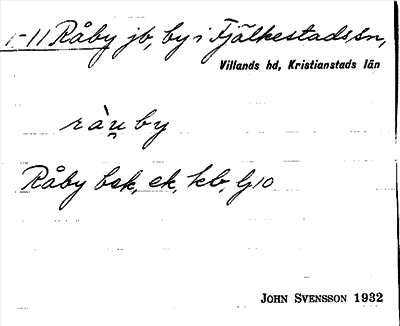 1-11 Råby jb, by i Fjälkestads sn,
Villands hd, Kristianstads län
ràu̯by
Råby bsk, ek, kb, G10
JOHN SVENSSON 1932